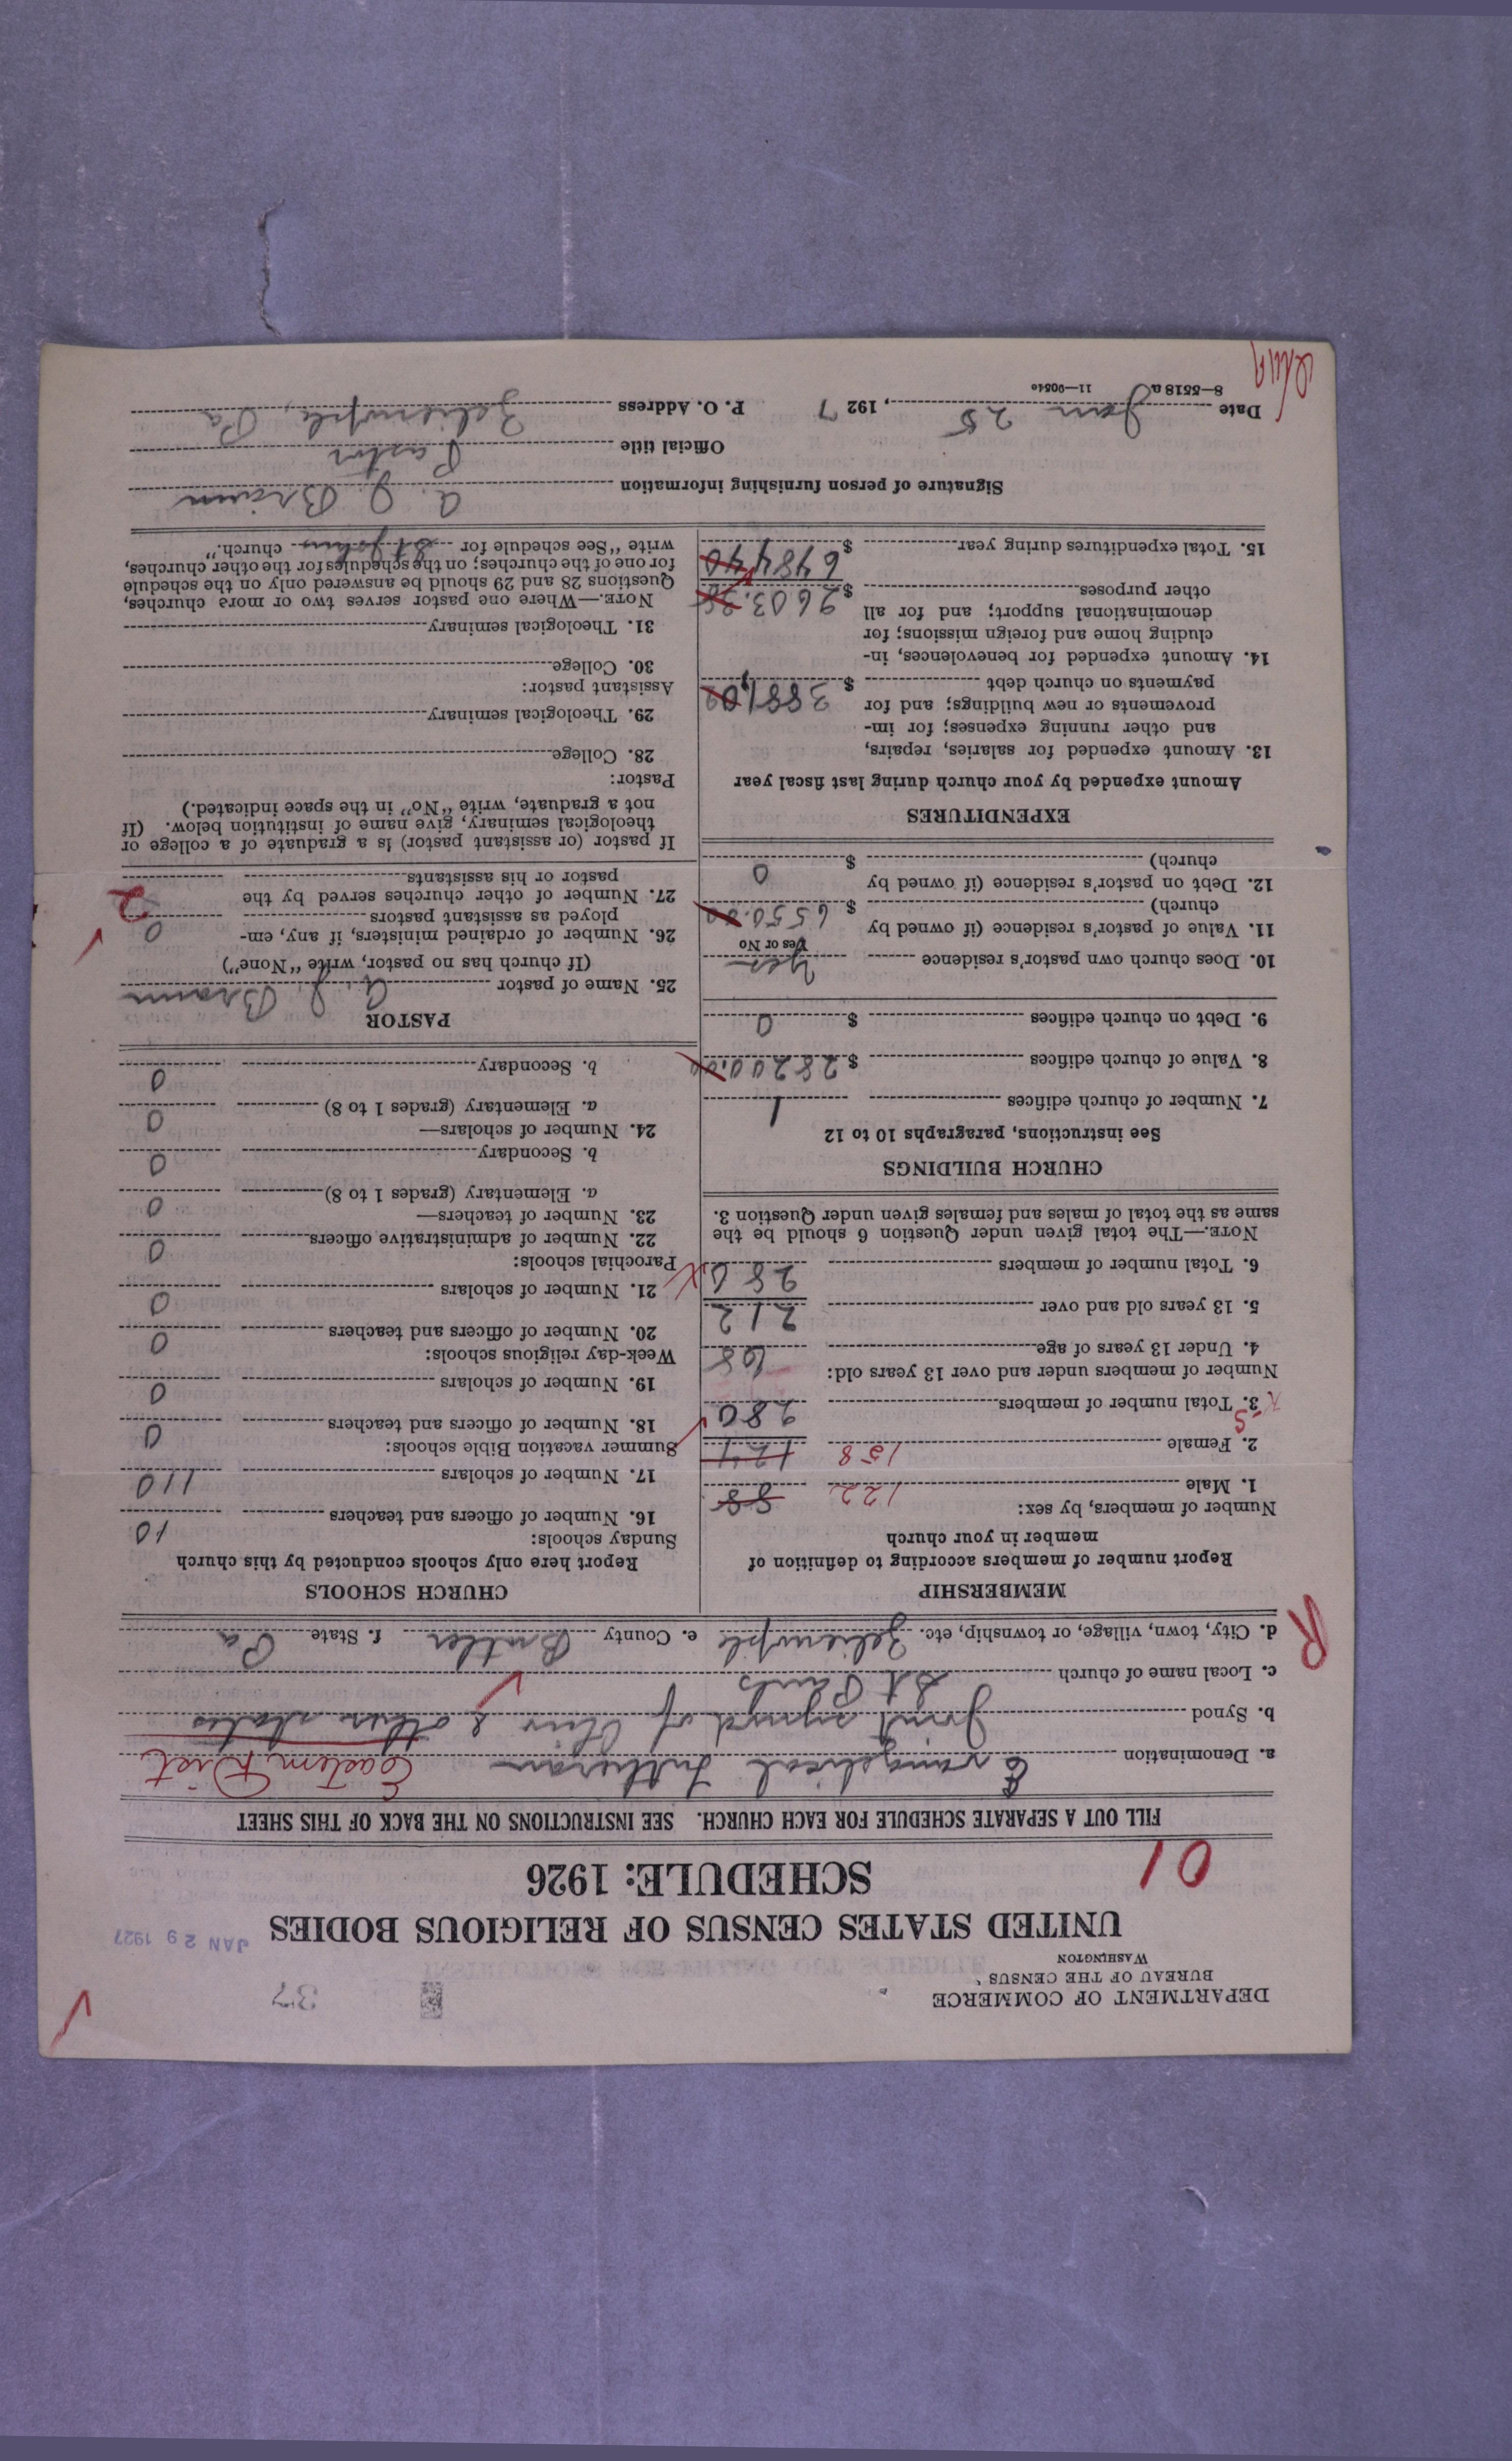 DEPARTMENT OF COMMERCE
BUREAU OF THE CENSUS
WASHINGTON
37
UNITED STATES CENSUS OF RELIGIOUS BODIES
JAN 29 1927
SCHEDULE: 1926
01
FILL OUT A SEPARATE SCHEDULE FOR EACH CHURCH. SEE INSTRUCTIONS ON THE BACK OF THIS SHEET
a. Denomination Evangelical Lutheran Eastern Dist
b. Synod Joint synod of Ohio & other states
c. Local name of church St Pauls
d. City, town, village, or township, etc. Zelienople e. County Butler f. State Pa
R
MEMBERSHIP
Report number of members according to definition of
member in your church
Number of members, by sex:
1. Male 122 88
2. Female 158 124
3. Total number of members 280
Number of members under and over 13 years old:
4. Under 13 years of age 68
5. 13 years old and over 212
6. Total number of members 280
NOTE.—The total given under Question 6 should be the
same as the total of males and females given under Question 3.
CHURCH BUILDINGS
See instructions, paragraphs 10 to 12
7. Number of church edifices 1
8. Value of church edifices $28200.00
9. Debt on church edifices $ 0
10. Does church own pastor's residence Yes
Yes or No
11. Value of pastor's residence (if owned by
church) $ 6550.00
12. Debt on pastor's residence (if owned by
church) $ 0
EXPENDITURES
Amount expended by your church during last fiscal year
13. Amount expended for salaries, repairs,
and other running expenses; for im-
provements or new buildings; and for
payments on church debt $ 3881.02
14. Amount expended for benevolences, in-
cluding home and foreign missions; for
denominational support; and for all
other purposes $ 2603.38
15. Total expenditures during year $ 6484.40
CHURCH SCHOOLS
Report here only schools conducted by this church
Sunday schools:
16. Number of officers and teachers 10
17. Number of scholars 110
Summer vacation Bible schools:
18. Number of officers and teachers 0
19. Number of scholars 0
Week-day religious schools:
20. Number of officers and teachers 0
21. Number of scholars 0
Parochial schools:
22. Number of administrative officers 0
23. Number of teachers—
a. Elementary (grades 1 to 8) 0
b. Secondary 0
24. Number of scholars—
a. Elementary (grades 1 to 8) 0
b. Secondary 0
PASTOR
25. Name of pastor A. J. Braun
(If church has no pastor, write "None")
26. Number of ordained ministers, if any, em-
ployed as assistant pastors 0
27. Number of other churches served by the
pastor or his assistants 2
If pastor (or assistant pastor) is a graduate of a college or
theological seminary, give name of institution below. (If
not a graduate, write "No" in the space indicated.)
Pastor:
28. College
29. Theological seminary
Assistant pastor:
30. College
31. Theological seminary
NOTE.—Where one pastor serves two or more churches,
Questions 28 and 29 should be answered only on the schedule
for one of the churches; on the schedules for the other churches,
write "See schedule for St Johns church."
Signature of person furnishing information A. J. Braun
Official title Pastor
Date Jan 25, 1927 P. O. Address Zelienople, Pa
8—5518 a 11—9054c